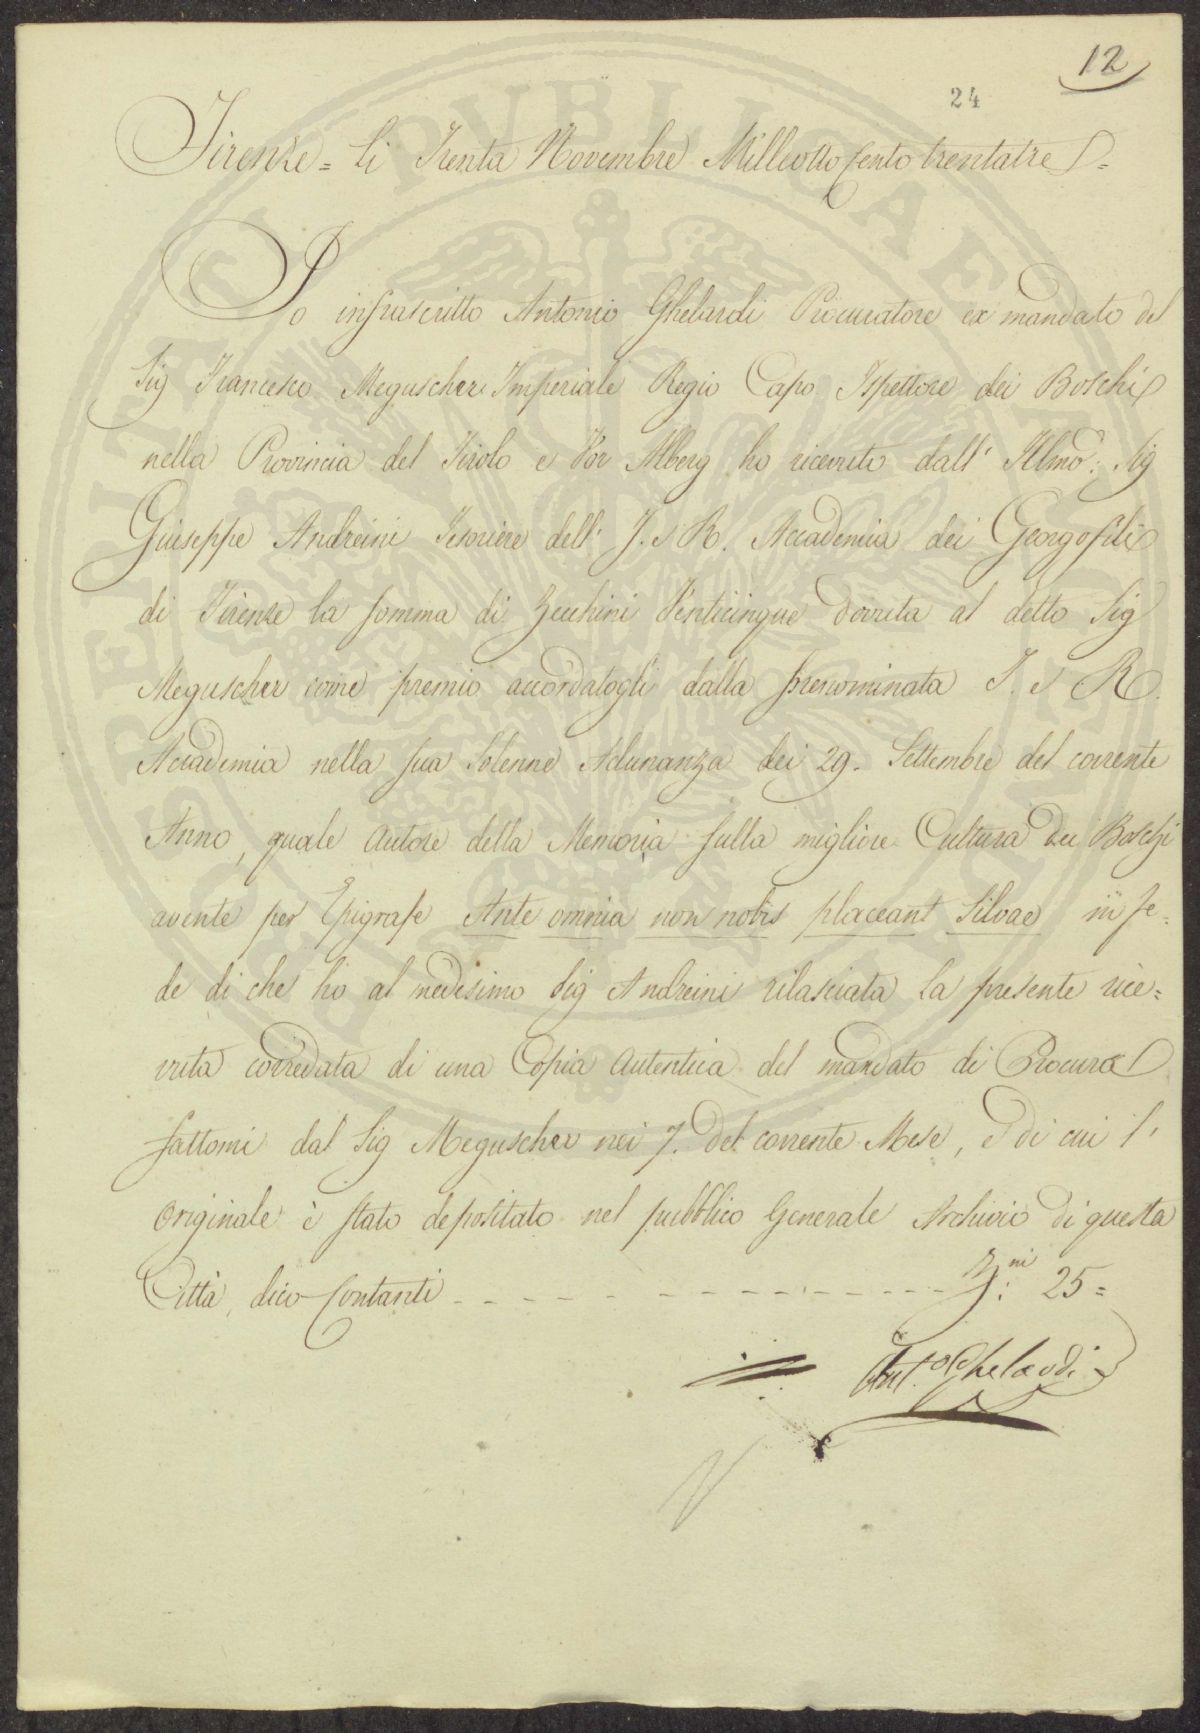 12
24
Firenze = li Trenta Novembre Milleottocento trentatre =
Io infrascritto Antonio Ghelardi Procuratore ex mandato del
Sig Francesco Meguscher Imperiale Regio Capo Ispettore dei Boschi
nella Provincia del Tirolo e Vor Alberg ho ricevuto dall' Illmo. Sig
Giuseppe Andreini Tesoriere dell' I. e R. Accademia dei Georgofili
di Firenze la somma di Zecchini Venticinque dovuta al detto Sig
Meguscher come premio accordatogli dalla prenominata I. e R.
Accademia nella sua Solenne Adunanza dei 29. Settembre del corrente
Anno, quale Autore della Memoria sulla migliore Cultura dei Boschi
avente per Epigrafe Ante omnia non nobis placeant Silvae in fe=
de di che ho al medesimo Sig Andreini rilasciata la presente rice=
vuta corredata di una Copia Autentica del mandato di Procura
fattomi dal Sig Meguscher nei 7. del corrente Mese, e di cui l'
Originale è stato depositato nel pubblico Generale Archivio di questa
Città, dico Contanti - - - - - Z.ni 25 =
Ant.o Ghelardi